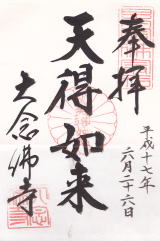 奉拝
平成十七年
六月二十六日
天得如来
大念佛寺